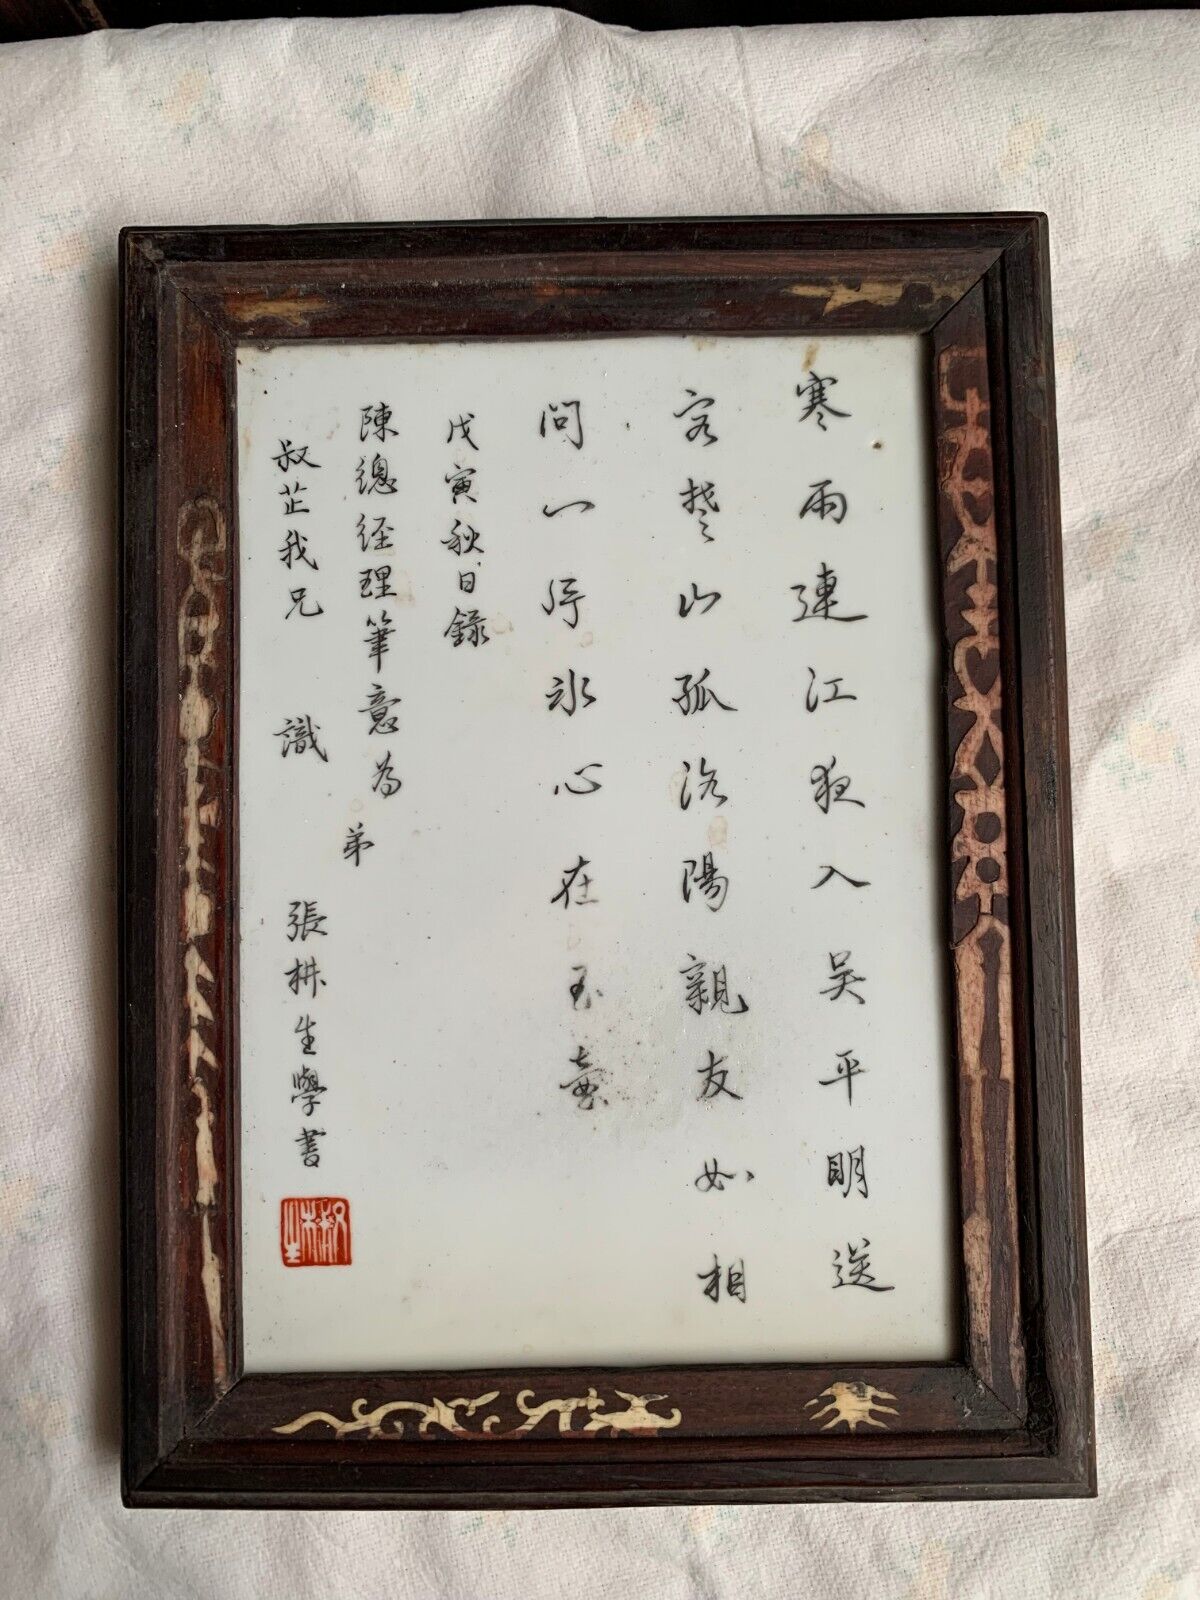 寒雨連江夜入吳平明送
客楚山孤洛陽親友如相
問一片冰心在玉壺
戊寅秋日錄
陳總經理筆意為
叔芷我兄 識
弟
張 生學書